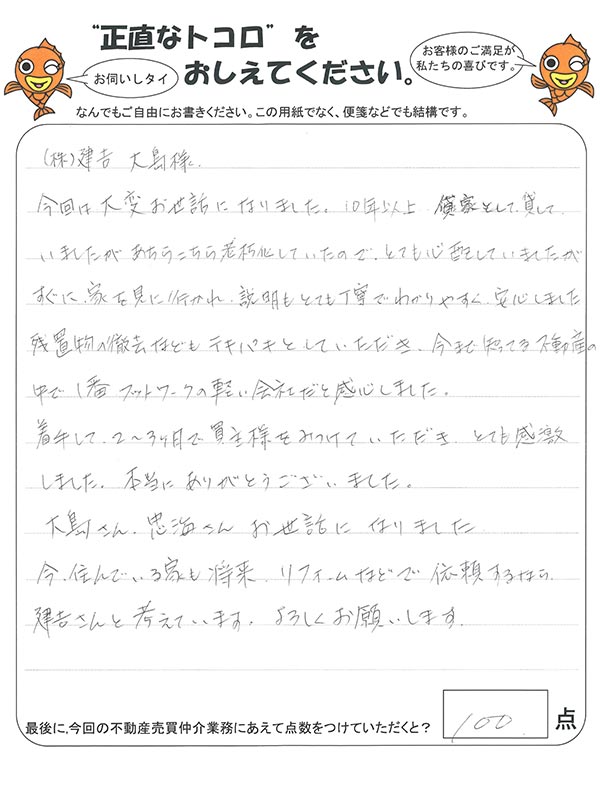 "正直なトコロ"を
お伺いしタイ
おしえてください。
お客様のご満足が
私たちの喜びです。
なんでもご自由にお書きください。この用紙でなく、便箋などでも結構です。
(株)建吉 大島様.
今回は大変お世話になりました。10年以上 貸家として貸して
いましたが あちらこちら老朽化していたので、とても心配していましたが
すぐに、家を見に行かれ、説明もとても丁寧でわかりやすく、安心しました
残置物の撤去などもテキパキとしていただき、今まで知ってる不動産の
中で1番フットワークの軽い会社だと感心しました。
着手して、2〜3ヶ月で買主様をみつけていただき、とても感激
しました。本当にありがとうございました。
大島さん、忠海さん お世話になりました
今、住んでいる家も将来、リフォームなどで依頼するなら
建吉さんと考えています。よろしくお願いします.
最後に、今回の不動産売買仲介業務にあえて点数をつけていただくと? 100 点